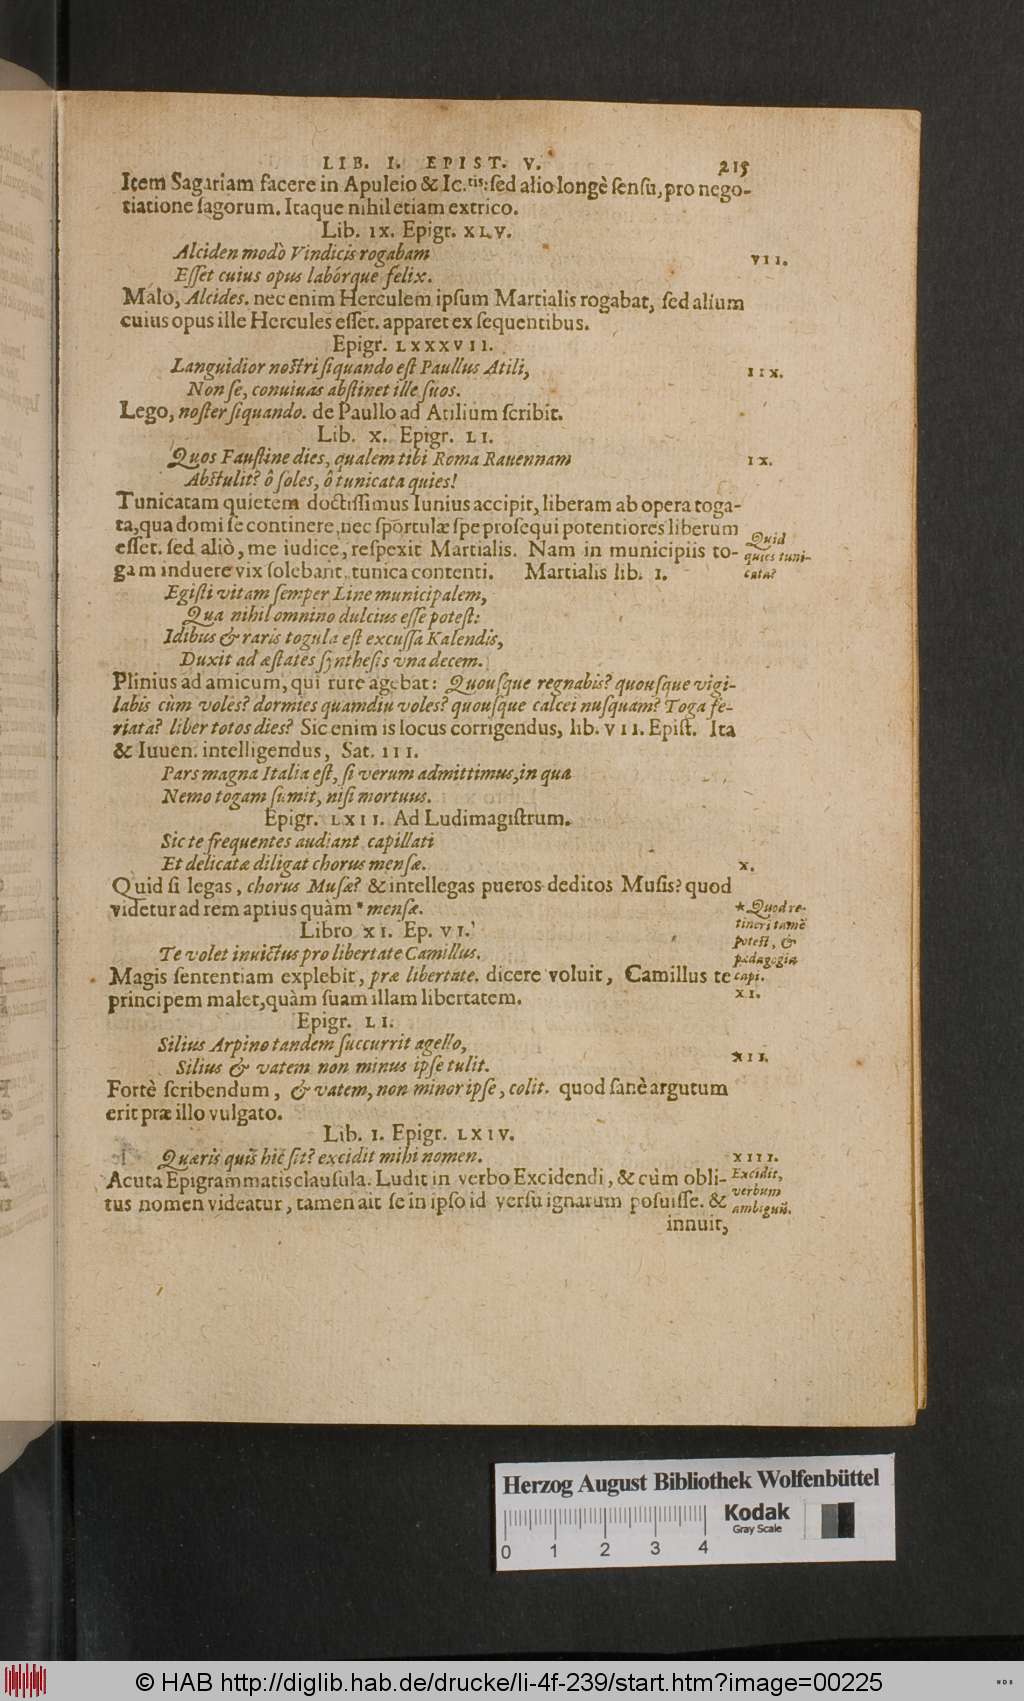 LIB. I. EPIST. V. 215
Item Sagariam facere in Apuleio & Ic.tis: sed alio longè sensu, pro nego-
tiatione sagorum. Itaque nihil etiam extrico.
Lib. IX. Epigr. XLV.
Alciden modò Vindicis rogabam
VII.
Esset cuius opus labórque felix.
Malo, Alcides. nec enim Herculem ipsum Martialis rogabat, sed alium
cuius opus ille Hercules esset. apparet ex sequentibus.
Epigr. LXXXVII.
Languidior nostri siquando est Paullus Atili,
IIX.
Non se, conuiuas abstinet ille suos.
Lego, noster siquando. de Paullo ad Atilium scribit.
Lib. X. Epigr. LI.
Quos Faustine dies, qualem tibi Roma Rauennam
IX.
Abstulit? ô soles, ô tunicata quies!
Tunicatam quietem doctissimus Iunius accipit, liberam ab opera toga-
ta, qua domi se continere, nec sportulæ spe prosequi potentiores liberum
esset. sed aliò, me iudice, respexit Martialis. Nam in municipiis to-
gam induere vix solebant, tunica contenti. Martialis lib. I.
Quid
quies tuni-
cata?
Egisti vitam semper Line municipalem,
Qua nihil omnino dulcius esse potest:
Idibus & raris togula est excussa Kalendis,
Duxit ad æstates synthesis vna decem.
Plinius ad amicum, qui rure agebat: Quousque regnabis? quousque vigi-
labis cùm voles? dormies quamdiu voles? quousque calcei nusquam? Toga fe-
riata? liber totos dies? Sic enim is locus corrigendus, lib. VII. Epist. Ita
& Iuuen. intelligendus, Sat. III.
Pars magna Italia est, si verum admittimus, in qua
Nemo togam sumit, nisi mortuus.
Epigr. LXII. Ad Ludimagistrum.
Sic te frequentes audiant capillati
Et delicatæ diligat chorus mensæ.
X.
Quid si legas, chorus Musæ? & intellegas pueros deditos Musis? quod
videtur ad rem aptius quàm * mensæ.
* Quod re-
tineri tamē
potest, &
pædagogia
capi.
Libro XI. Ep. VI.
Te volet inuictus pro libertate Camillus.
Magis sententiam explebit, præ libertate. dicere voluit, Camillus te
principem malet, quàm suam illam libertatem.
XI.
Epigr. LI.
Silius Arpino tandem succurrit agello,
XII.
Silius & vatem non minus ipse tulit.
Fortè scribendum, & vatem, non minor ipse, colit. quod sanè argutum
erit præ illo vulgato.
Lib. I. Epigr. LXIV.
Quæris quis hic sit? excidit mihi nomen.
XIII.
Acuta Epigrammatis clausula. Ludit in verbo Excidendi, & cùm obli-
tus nomen videatur, tamen ait se in ipso id versu ignarum posuisse. &
Excidit,
verbum
ambiguū.
innuit,
Herzog August Bibliothek Wolfenbüttel
Kodak
Gray Scale
0 1 2 3 4
© HAB http://diglib.hab.de/drucke/li-4f-239/start.htm?image=00225